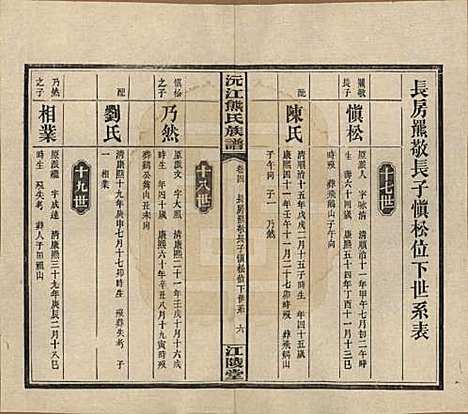 長房羆敬長子愼松位下世系表
十七世
羆敬
長子
愼松
原派 字詠清 清順治十一年甲午七月初二午
時生 壽六十四歲 康熙五十四年丁酉十一月十三巳
時殁 葬來鵝山子午向
配
陳氏
清順治十五年戊戌十二月十四卯時生 年四十五歲
康熙四十一年壬午十一月十二巳時殁 葬來鵝山
子午向 子一 乃然
沅江熊氏族譜
卷四 長房羆敬長子愼松位下世系 六
江陵堂
十八世
愼松
之子
乃然
原派文 字大照 清康熙二十一年壬戌十月十六戌
時生 年四十歲 康熙六十年辛丑八月十九寅時殁
葬鶴公嘴山丑未向
配
劉氏
清康熙十九年庚申七月十七卯時生 殁葬失考 子
一 相業
十九世
乃然
之子
相業
原派繼 字成遠 清康熙三十九年庚辰二月十八巳
時生 殁失考 葬人子田嘴山